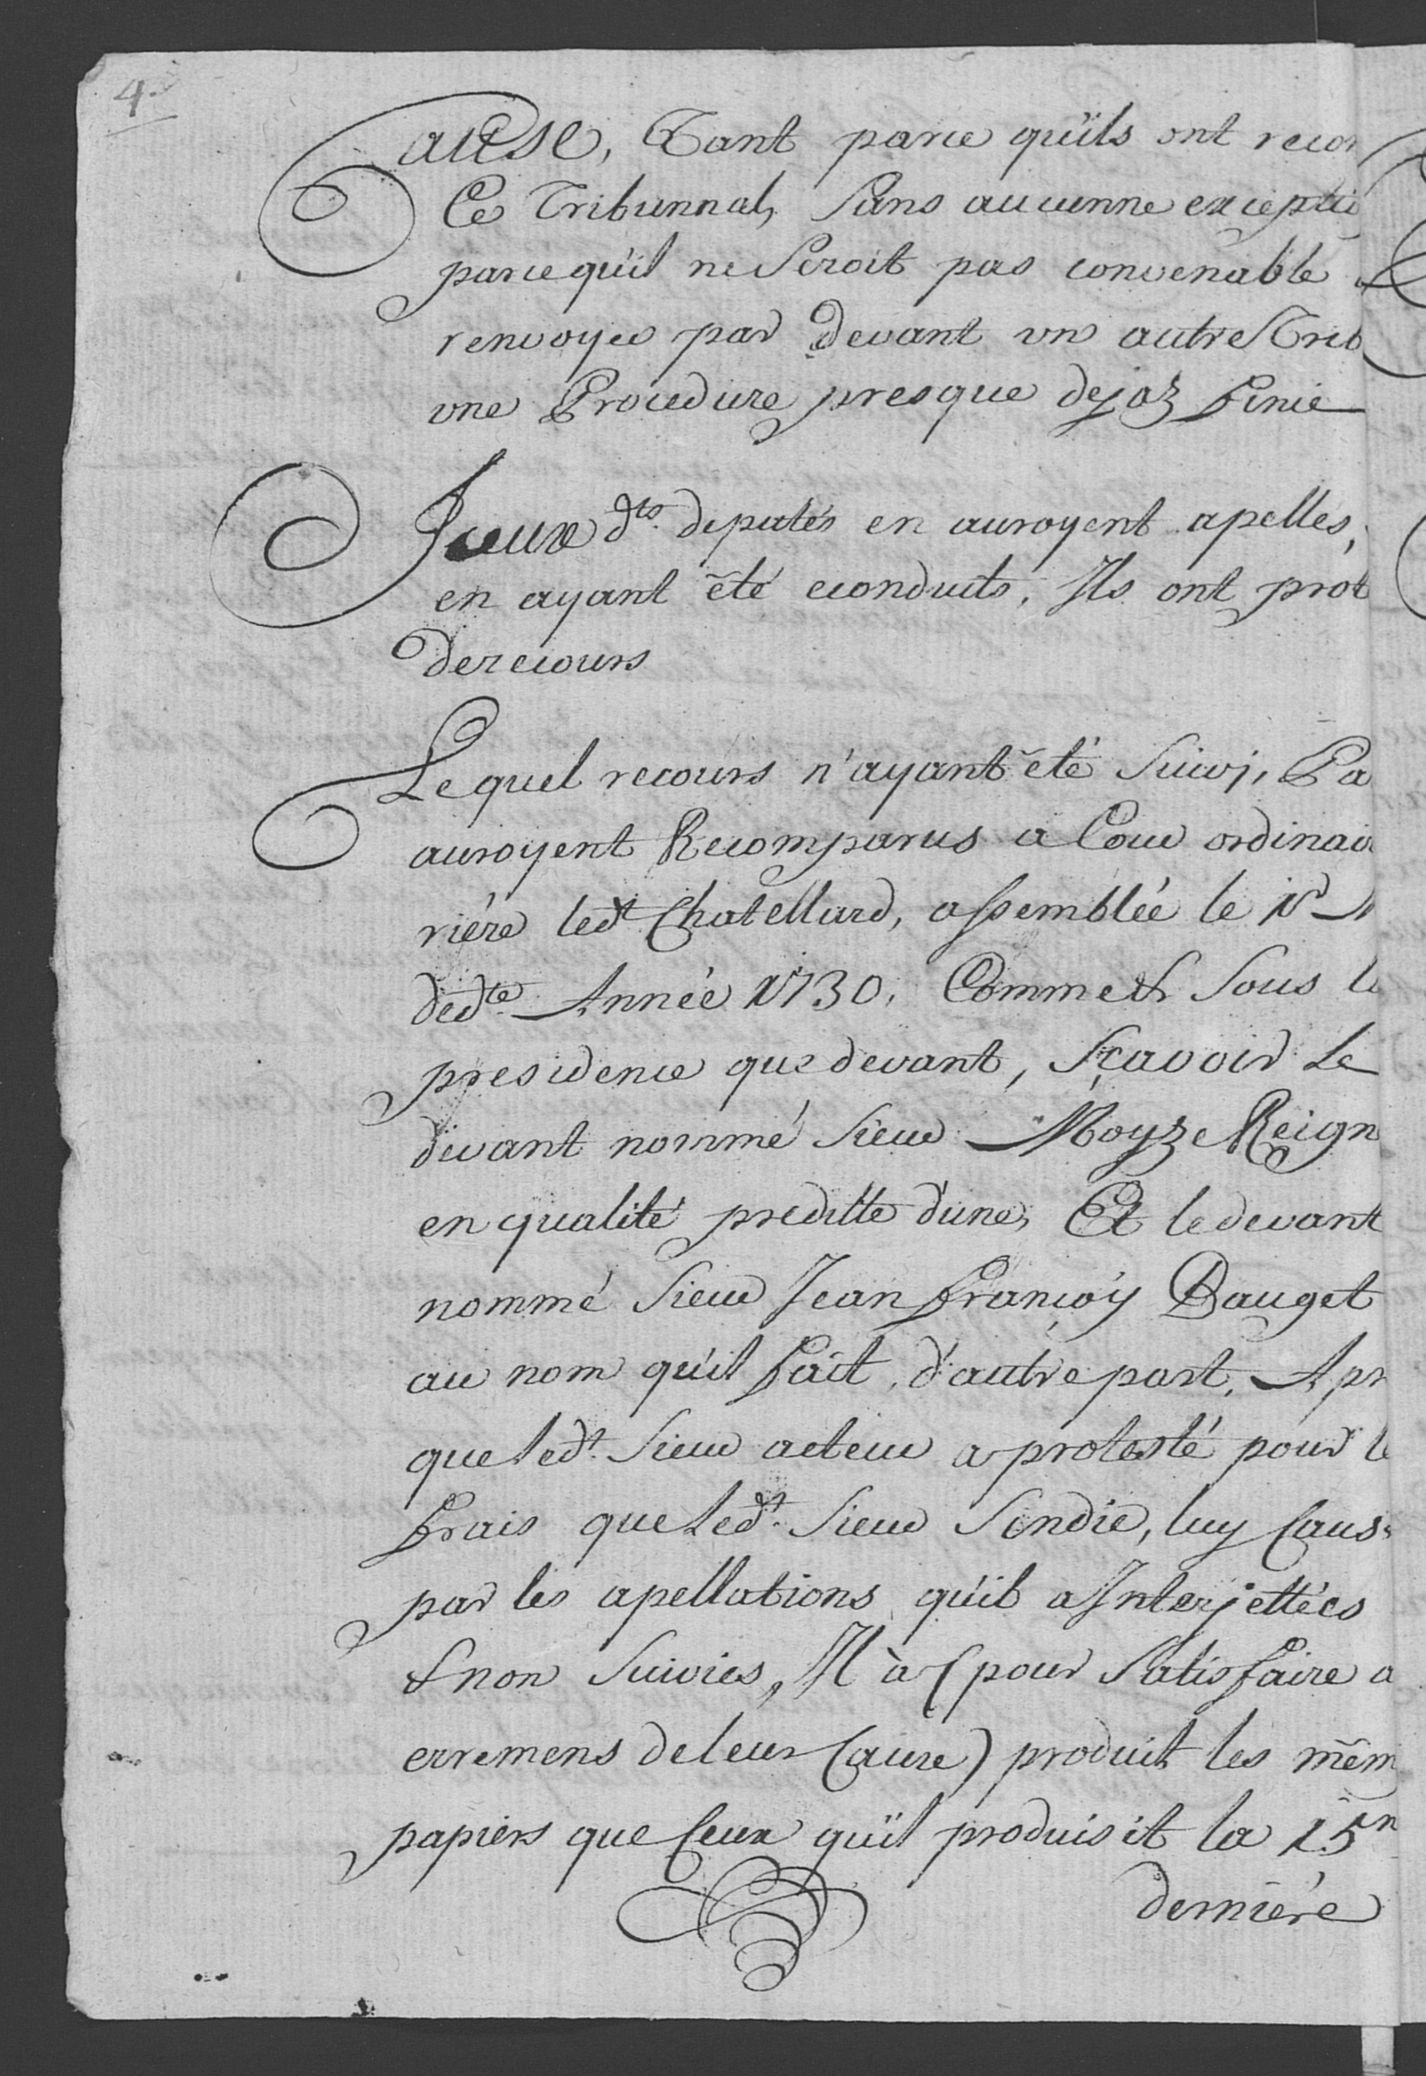 4.
Cause, Tant parce qu'ils ont recon
Ce Tribunnal, Sans aucunne exceptio
parcequ'il ne Seroit pas convenable
renvoyer par devant vn autre Trib
vne Procedure presque dejaz finie
Jceux dts. deputés en auroyent apelles,
en ayant été econduits, Ils ont prot
de recours
Lequel recours n'ayant été Suivj, Pa
auroyent Recomparus a Cour ordinai
riére ledt Chatellard, assemblée le
dedte. Année 1730, Comme & Sous l
presidence que devant, Sçavoir Le
devant nommé Sieur Moyze Reign
en qualité preditte d'une, Et ledevant
nommé Sieur Jean françoy Dauget
au nom qu'il fait, d'autre part, Apr
que ledt. Sieur acteur a protesté pour l
frais que ledt. Sieur Sindic, luy Caus
par les apellations qu'il a Interjettées
& non Suivies, Il à (pour Satisfaire a
erremens de leur Cause) produit les mêm
papiers que Ceux qu'il produisit la 15n
derniére